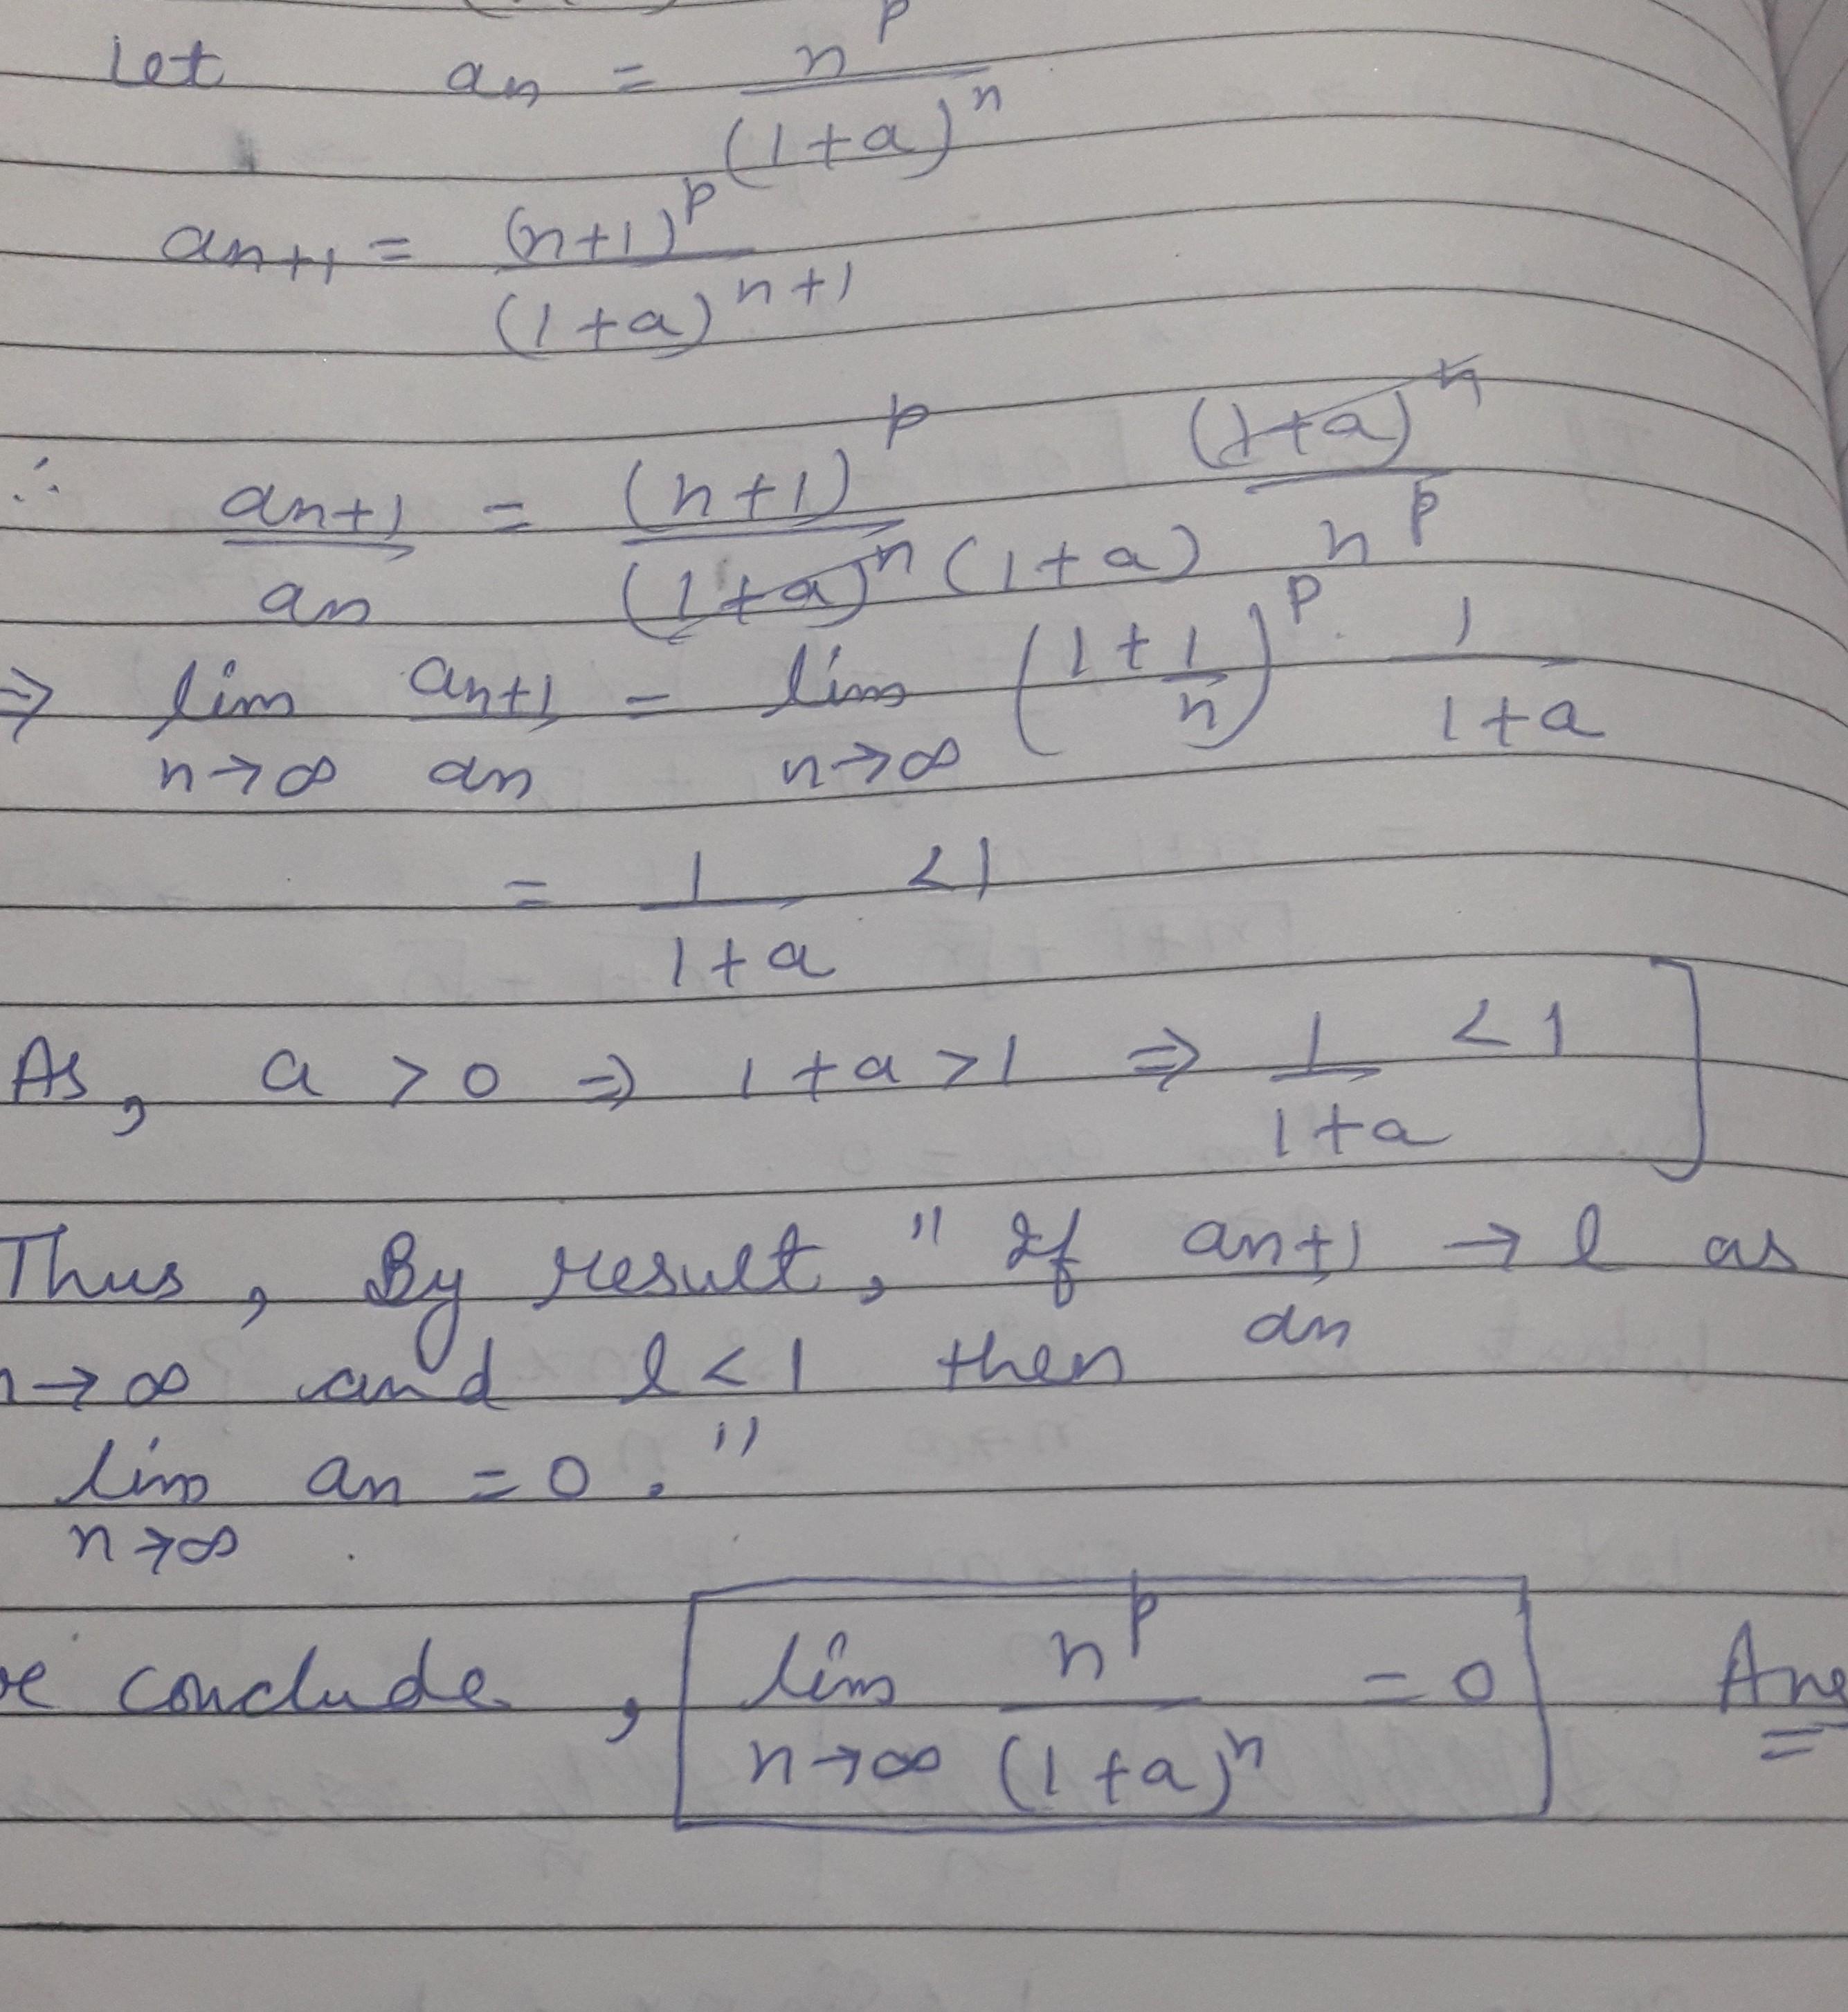 Let an = n^p / (1+a)^n
an+1 = (n+1)^p / (1+a)^n+1
∴ an+1 / an = (n+1)^p / (1+a)^n (1+a) (1+a)^n / n^p
⇒ lim n→∞ an+1 / an = lim n→∞ (1 + 1/n)^p . 1 / 1+a
= 1 / 1+a < 1
As, a > 0 ⇒ 1+a > 1 ⇒ 1 / 1+a < 1 ]
Thus, By result, " If an+1 / an → l as
n→∞ and l < 1 then
lim n→∞ an = 0 . "
e conclude, lim n→∞ n^p / (1+a)^n = 0 Ans